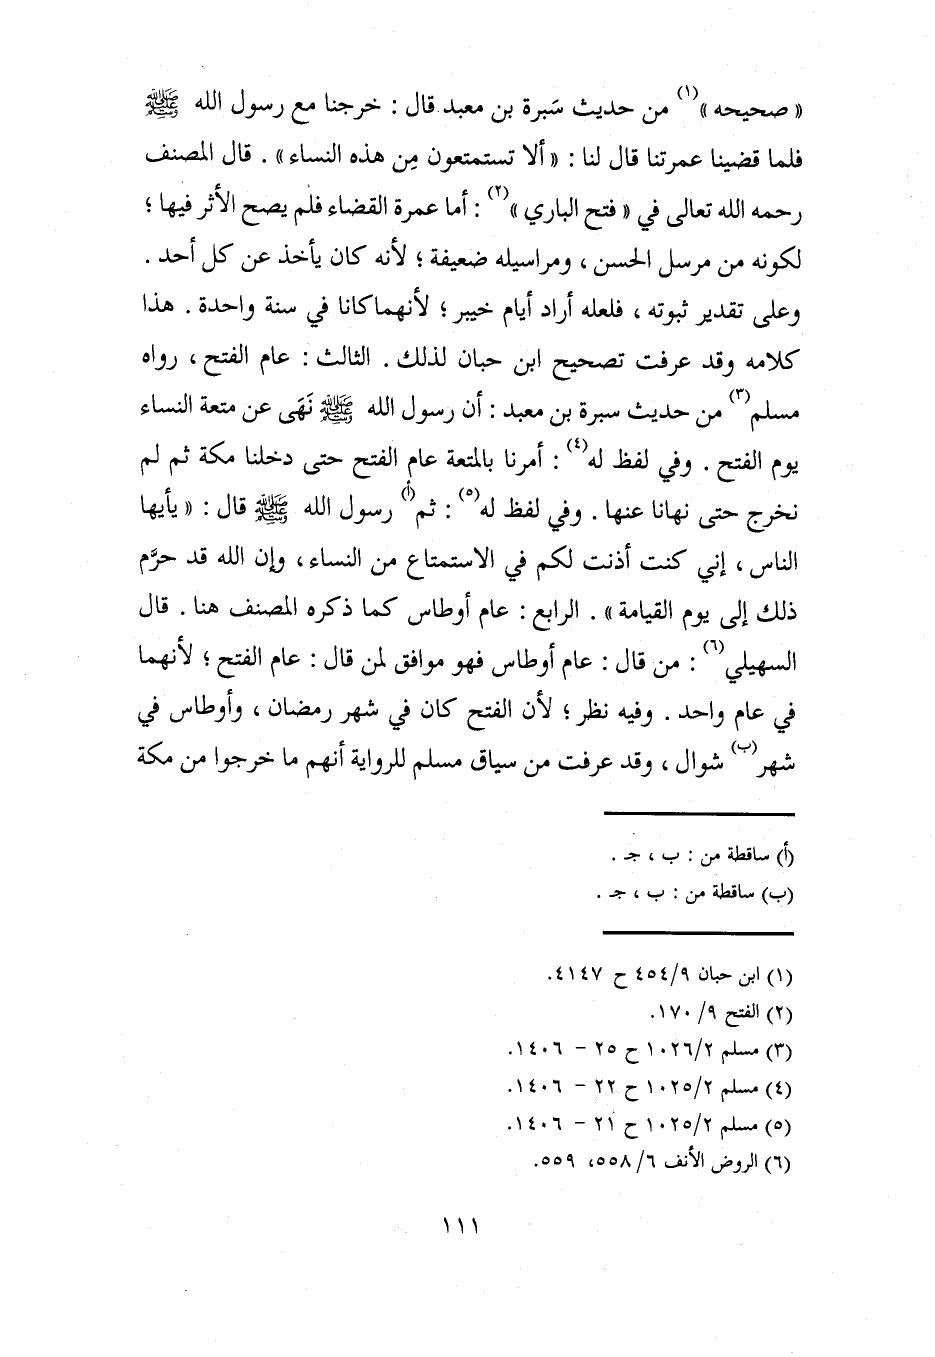 « صحيحه »(١) من حديث سَبرة بن معبد قال : خرجنا مع رسول الله ﷺ
فلما قضينا عمرتنا قال لنا : « ألا تستمتعون مِن هذه النساء » . قال المصنف
رحمه الله تعالى في « فتح الباري »(٢) : أما عمرة القضاء فلم يصح الأثر فيها ؛
لكونه من مرسل الحسن ، ومراسيله ضعيفة ؛ لأنه كان يأخذ عن كل أحد .
وعلى تقدير ثبوته ، فلعله أراد أيام خيبر ؛ لأنهما كانا في سنة واحدة . هذا
كلامه وقد عرفت تصحيح ابن حبان لذلك . الثالث : عام الفتح ، رواه
مسلم(٣) من حديث سبرة بن معبد : أن رسول الله ﷺ نَهَى عن متعة النساء
يوم الفتح . وفي لفظ له(٤) : أمرنا بالمتعة عام الفتح حتى دخلنا مكة ثم لم
نخرج حتى نهانا عنها . وفي لفظ له(٥) : ثم(أ) رسول الله ﷺ قال : « يأيها
الناس ، إني كنت أذنت لكم في الاستمتاع من النساء ، وإن الله قد حرَّم
ذلك إلى يوم القيامة » . الرابع : عام أوطاس كما ذكره المصنف هنا . قال
السهيلي(٦) : من قال : عام أوطاس فهو موافق لمن قال : عام الفتح ؛ لأنهما
في عام واحد . وفيه نظر ؛ لأن الفتح كان في شهر رمضان ، وأوطاس في
شهر(ب) شوال ، وقد عرفت من سياق مسلم للرواية أنهم ما خرجوا من مكة
(أ) ساقطة من : ب ، جـ .
(ب) ساقطة من : ب ، جـ .
(١) ابن حبان ٤٥٤/٩ ح ٤١٤٧.
(٢) الفتح ٩/ ١٧٠.
(٣) مسلم ١٠٢٦/٢ ح ٢٥ - ١٤٠٦.
(٤) مسلم ١٠٢٥/٢ ح ٢٢ - ١٤٠٦.
(٥) مسلم ١٠٢٥/٢ ح ٢١ - ١٤٠٦.
(٦) الروض الأنف ٦/ ٥٥٨، ٥٥٩.
١١١